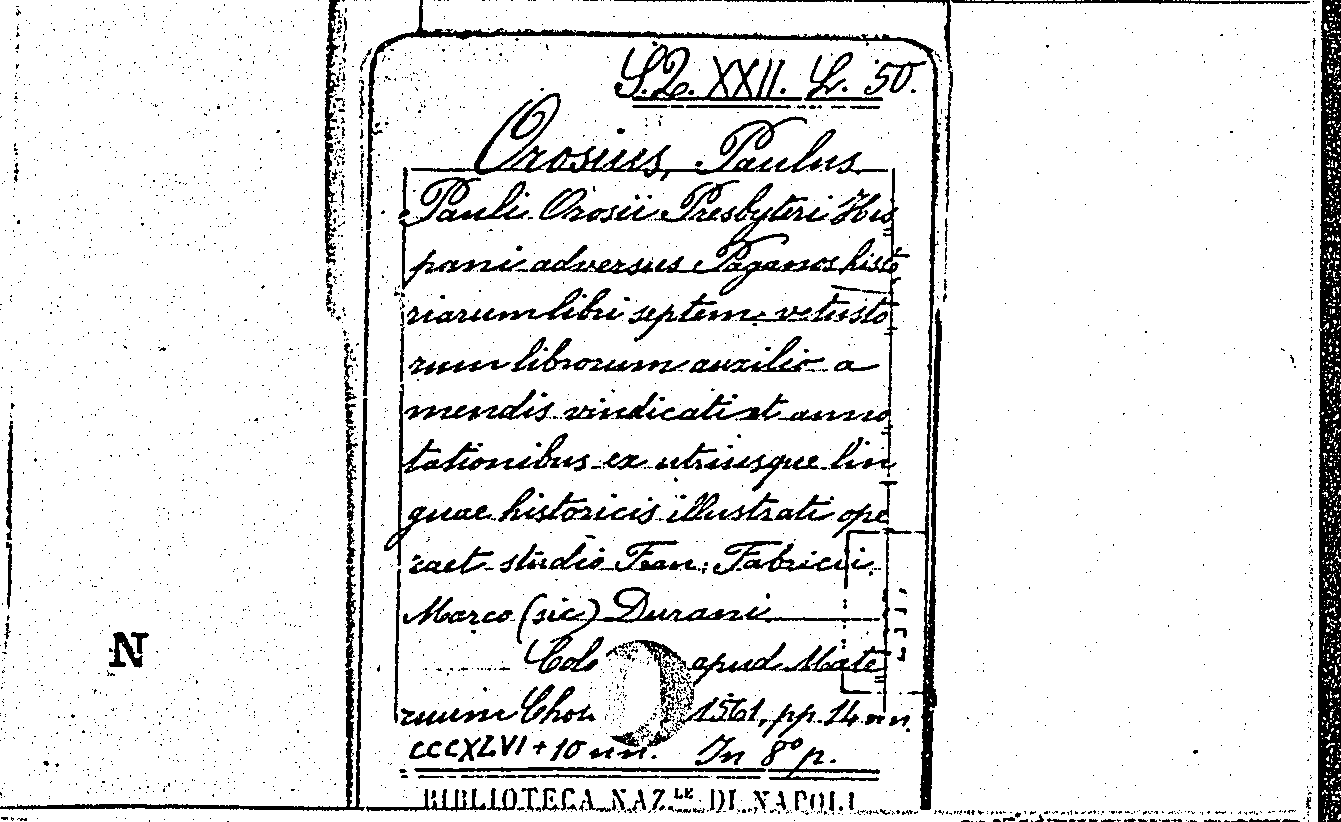 S.Q. XXII. L. 50.
Orosius, Paulus.
Pauli Orosii Presbyteri His
pani adversus Paganos histo
riarum libri septem: vetusto
rum librorum auxilio a
mendis vindicati et anno
tationibus ex utriusque lin
guae historicis illustrati ope
ra et studio Fran: Fabricii
Marco (sic) Durani
apud Mate
1561, pp. 14 nn.
CCCXLVI + 10 nn. In 8° p.
N
BIBLIOTECA NAZ.LE DI NAPOLI